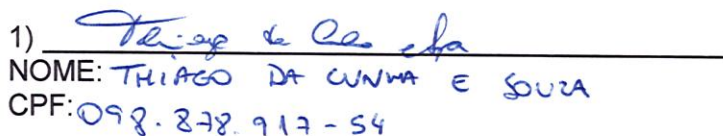 1)
NOME: THIAGO DA CUNHA E SOUZA
CPF: 098.878.917-54